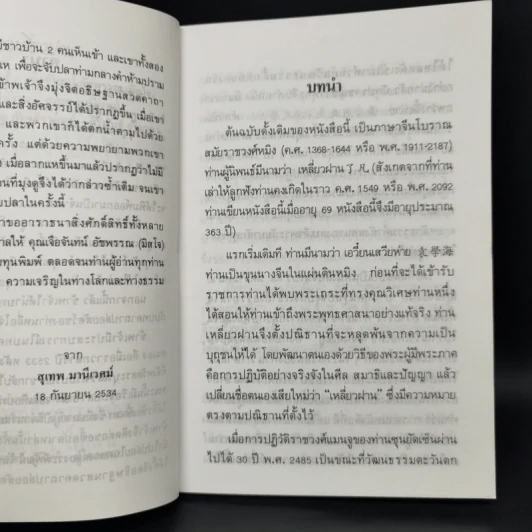 มีชาวบ้าน 2 คนเห็นเข้า และเขาทั้งสอง
แห เพื่อจะจับปลาท่ามกลางคำห้ามปราม
ข้าพเจ้าจึงมุ่งจิตอธิษฐานสวดคาถา
และสิ่งอัศจรรย์ได้ปรากฏขึ้น เมื่อเขา
และพวกเขาก็ได้ดำน้ำตามไปด้วย
ครั้ง แต่ด้วยความพยายามพวกเขา
เมื่อลากแหขึ้นมาแล้วปรากฏว่าไม่มี
คนที่มุงดูจึงได้ว่ากล่าวซ้ำเติม จนเขา
บปลาในครั้งนี้
ขออาราธนาสิ่งศักดิ์สิทธิ์ทั้งหลาย
ดาลให้ คุณเจือจันทน์ อัชพรรณ (มิสโจ)
ทุนพิมพ์ ตลอดจนท่านผู้อ่านทุกท่าน
ความเจริญในทางโลกและทางธรรม
จาก
สุเทพ มานีเวศม์
18 กันยายน 2534
บทนำ
ต้นฉบับดั้งเดิมของหนังสือนี้ เป็นภาษาจีนโบราณ
สมัยราชวงศ์หมิง (ค.ศ. 1368-1644 หรือ พ.ศ. 1911-2187)
ท่านผู้นิพนธ์มีนามว่า เหลี่ยวฝาน 了凡 (สังเกตจากที่ท่าน
เล่าให้ลูกฟังท่านคงเกิดในราว ค.ศ. 1549 หรือ พ.ศ. 2092
ท่านเขียนหนังสือนี้เมื่ออายุ 69 หนังสือนี้จึงมีอายุประมาณ
363 ปี)
แรกเริ่มเดิมที ท่านมีนามว่า เอวี๋ยนเสวียห่าย 袁學海
ท่านเป็นขุนนางจีนในแผ่นดินหมิง ก่อนที่จะได้เข้ารับ
ราชการท่านได้พบพระเถระที่ทรงคุณวิเศษท่านหนึ่ง
ได้สอนให้ท่านเข้าถึงพระพุทธศาสนาอย่างแท้จริง ท่าน
เหลี่ยวฝานจึงตั้งปณิธานที่จะหลุดพ้นจากความเป็น
บุถุชนให้ได้ โดยพัฒนาตนเองด้วยวิธีของพระผู้มีพระภาค
คือการปฏิบัติอย่างจริงจังในศีล สมาธิและปัญญา แล้ว
เปลี่ยนชื่อตนเองเสียใหม่ว่า "เหลี่ยวฝาน" ซึ่งมีความหมาย
ตรงตามปณิธานที่ตั้งไว้
เมื่อการปฏิวัติราชวงศ์แมนจูของท่านซุนยัดเซ็นผ่าน
ไปได้ 30 ปี พ.ศ. 2485 เป็นขณะที่วัฒนธรรมตะวันตก